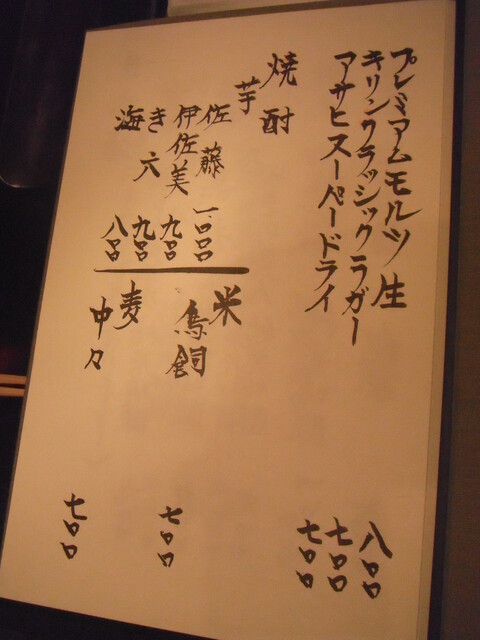 プレミアムモルツ生 八〇〇
キリンクラッシックラガー 七〇〇
アサヒスーパードライ 七〇〇
焼酎
芋
佐藤 一〇〇〇
伊佐美 九〇〇
き六 九〇〇
海 八〇〇
米
鳥飼 七〇〇
麦
中々 七〇〇